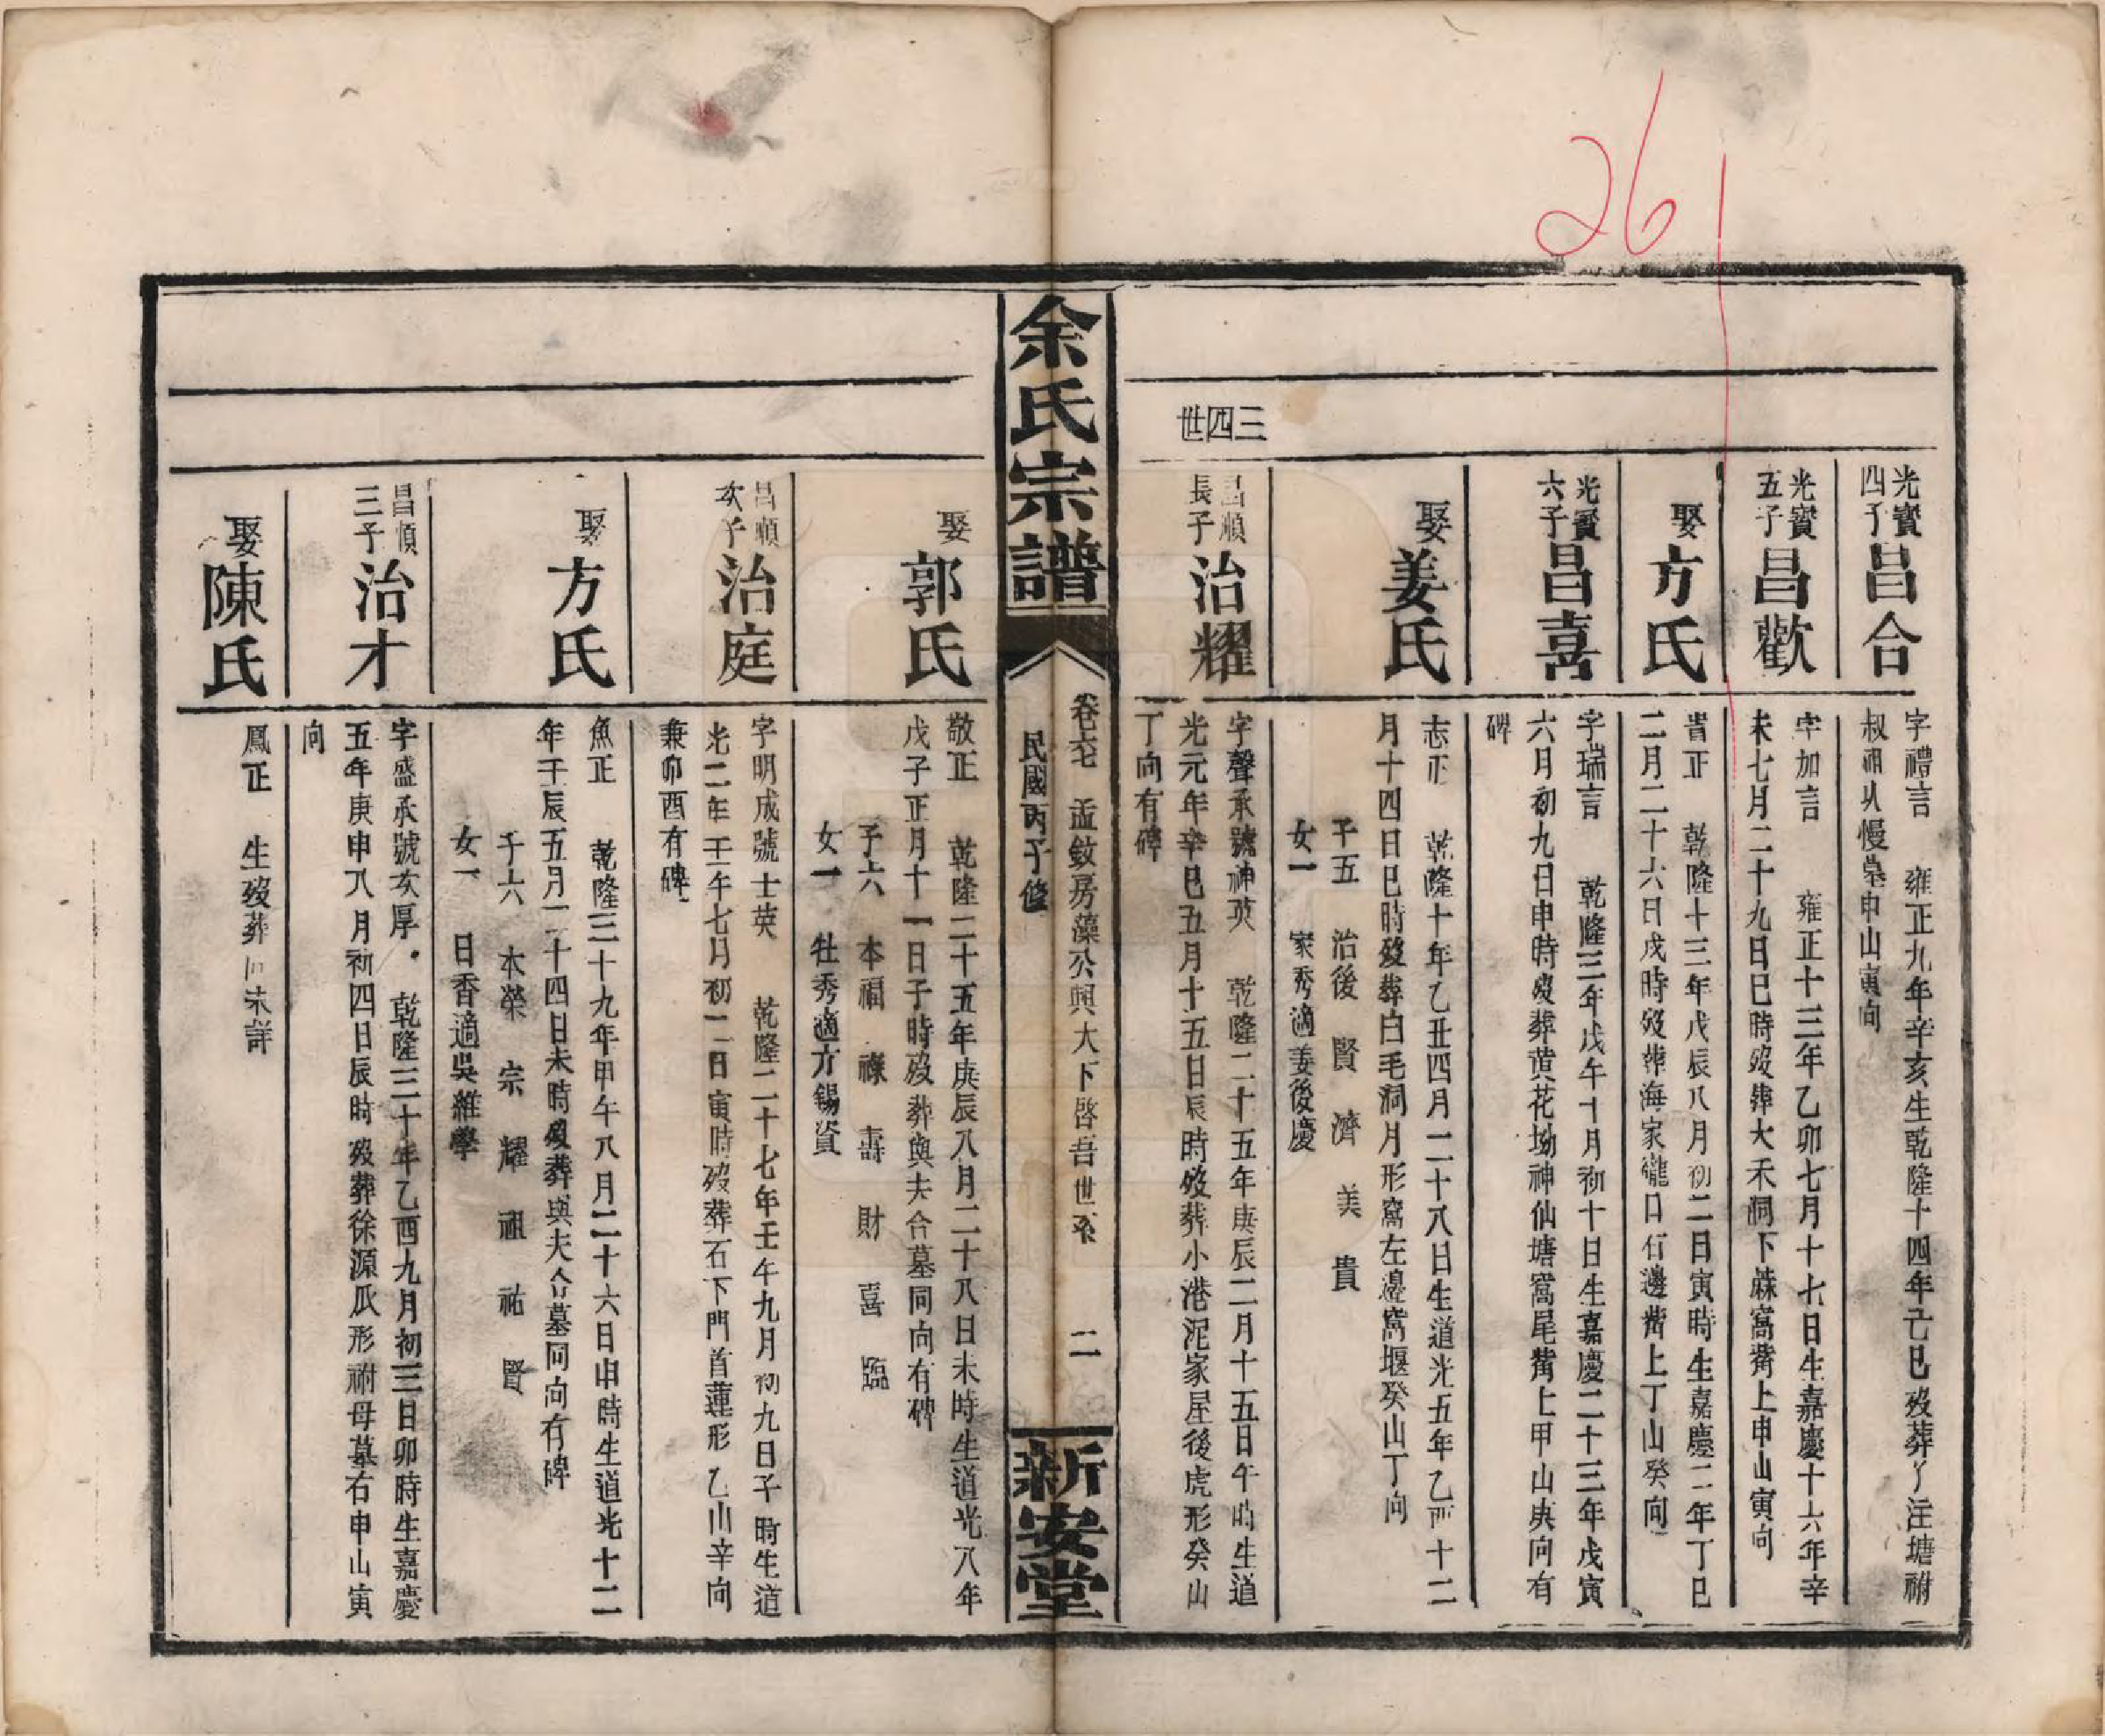 261
三四世
光寶四子
昌合
字禮言　雍正九年辛亥生乾隆十四年己巳歿葬丫注塘祔
叔祖從慢墓申山寅向
光寶五子
昌歡
字加言　雍正十三年乙卯七月十七日生嘉慶十六年辛
未七月二十九日巳時歿葬大禾洞下蔴窩嘴上申山寅向
娶方氏
冑正　乾隆十三年戊辰八月初二日寅時生嘉慶二年丁巳
二月二十六日戌時歿葬海家壠口右邊嘴上丁山癸向
光寶六子
昌喜
字瑞言　乾隆三年戊午十月初十日生嘉慶二十三年戊寅
六月初九日申時歿葬黄花坳神仙塘窩尾嘴上甲山庚向有
碑
娶姜氏
志正　乾隆十年乙丑四月二十八日生道光五年乙酉十二
月十四日巳時歿葬白毛洞月形窩左邊窩堰癸山丁向
子五　治後　賢　濟　美　貴
女一　家秀適姜後慶
昌順長子
治耀
字聲承號神英　乾隆二十五年庚辰二月十五日午時生道
光元年辛巳五月十五日辰時歿葬小港泥家屋後虎形癸山
丁向有碑
余氏宗譜
卷七　孟敘房藻公與大下啓吾世系　二
民國丙子修
新安堂
娶郭氏
敬正　乾隆二十五年庚辰八月二十八日未時生道光八年
戊子正月十一日子時歿葬與夫合墓同向有碑
子六　本福　祿　壽　財　喜　臨
女一　牡秀適方錫資
昌順次子
治庭
字明成號士英　乾隆二十七年壬午九月初九日子時生道
光二年壬午七月初二日寅時歿葬石下門首蓮形乙山辛向
兼卯酉有碑
娶方氏
魚正　乾隆三十九年甲午八月二十六日申時生道光十二
年壬辰五月二十四日未時歿葬與夫合墓同向有碑
子六　本榮　宗　耀　祖　祐　賢
女一　日香適吳維學
昌順三子
治才
字盛承號次厚　乾隆三十年乙酉九月初三日卯時生嘉慶
五年庚申八月初四日辰時歿葬徐源瓜形祔母墓右申山寅
向
娶陳氏
鳳正　生歿葬向未詳